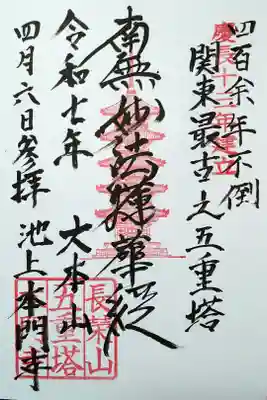 四百余年不倒
慶長十二年建立
関東最古之五重塔
南無妙法蓮華経
令和七年 大本山
四月六日参拝 池上本門寺
長榮山
五重塔